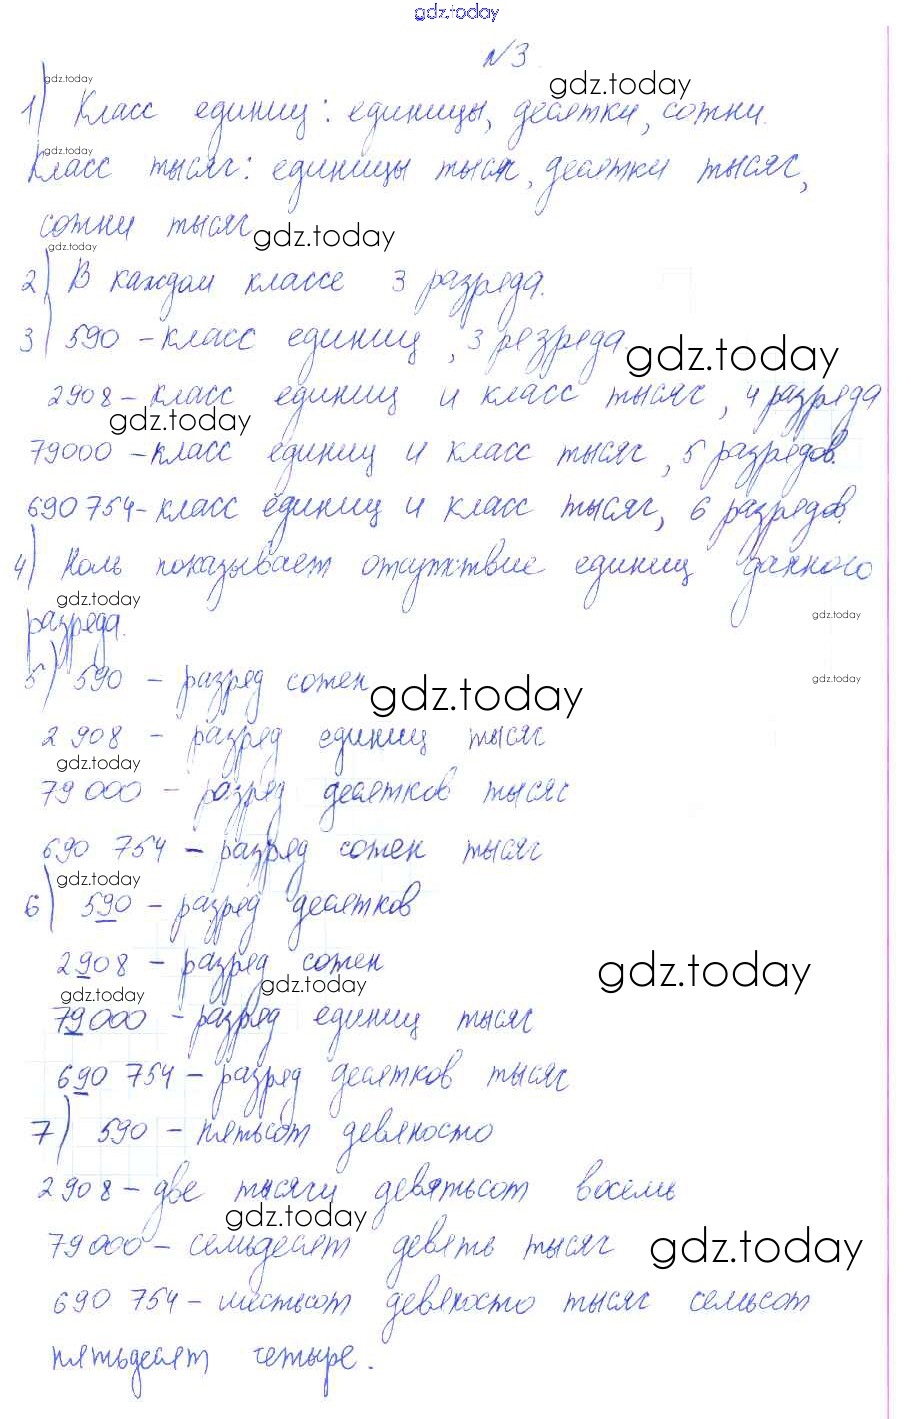 gdz.today
№3.
gdz.today
gdz.today
1) Класс единиц: единицы, десятки, сотни.
gdz.today
Класс тысяч: единицы тысяч, десятки тысяч,
сотни тысяч
gdz.today
gdz.today
2) В каждом классе 3 разряда.
3) 590 - класс единиц, 3 резряда.
gdz.today
2908 - класс единиц и класс тысяч, 4 разряда
gdz.today
79000 - класс единиц и класс тысяч, 5 разрядов.
690 754 - класс единиц и класс тысяч, 6 разрядов.
4) Ноль показывает отсутствие единиц данного
gdz.today
gdz.today
разряда.
5) 590 - разряд сотен
gdz.today
gdz.today
2 908 - разряд единиц тысяч
gdz.today
79 000 - разряд десятков тысяч
690 754 - разряд сотен тысяч
gdz.today
6) 590 - разряд десятков
2908 - разряд сотен
gdz.today
gdz.today
gdz.today
79000 - разряд единиц тысяч
690 754 - разряд десятков тысяч
7) 590 - пятьсот девяносто
2 908 - две тысячи девятьсот восемь
gdz.today
79 000 - семьдесят девять тысяч
gdz.today
690 754 - шестьсот девяносто тысяч семьсот
пятьдесят четыре.